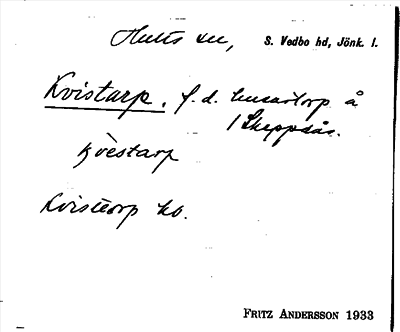 Hults sn, S. Vedbo hd, Jönk. l.
Kvistarp. f.d. husartorp å
1 Skeppsås.
kvèstarp
Kvistorp hb.
FRITZ ANDERSSON 1933